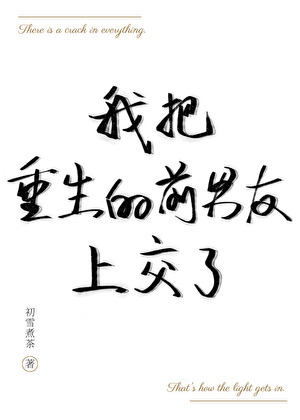 There is a crack in everything.
我把
重生的前男友
上交了
初雪煮茶
著
That's how the light gets in.